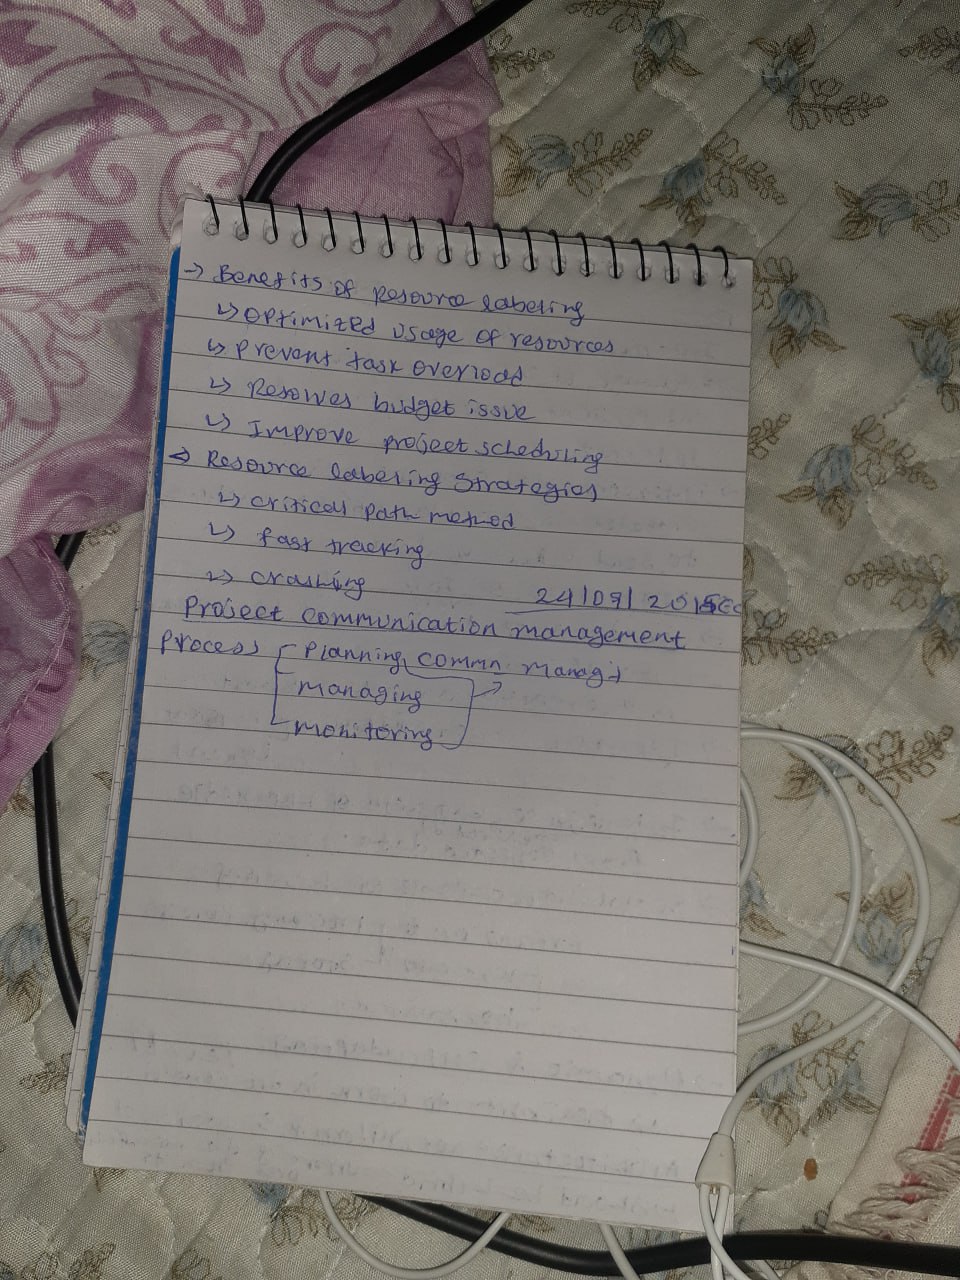 → Benefits of Resource labeling
↳ Optimized usage of resources
↳ Prevent task overload
↳ Resolves budget issue
↳ Improve project scheduling
→ Resource labeling Strategies
↳ critical path method
↳ fast tracking
↳ crashing
24/09/
Project communication management
Process Planning commn manag
managing
monitoring